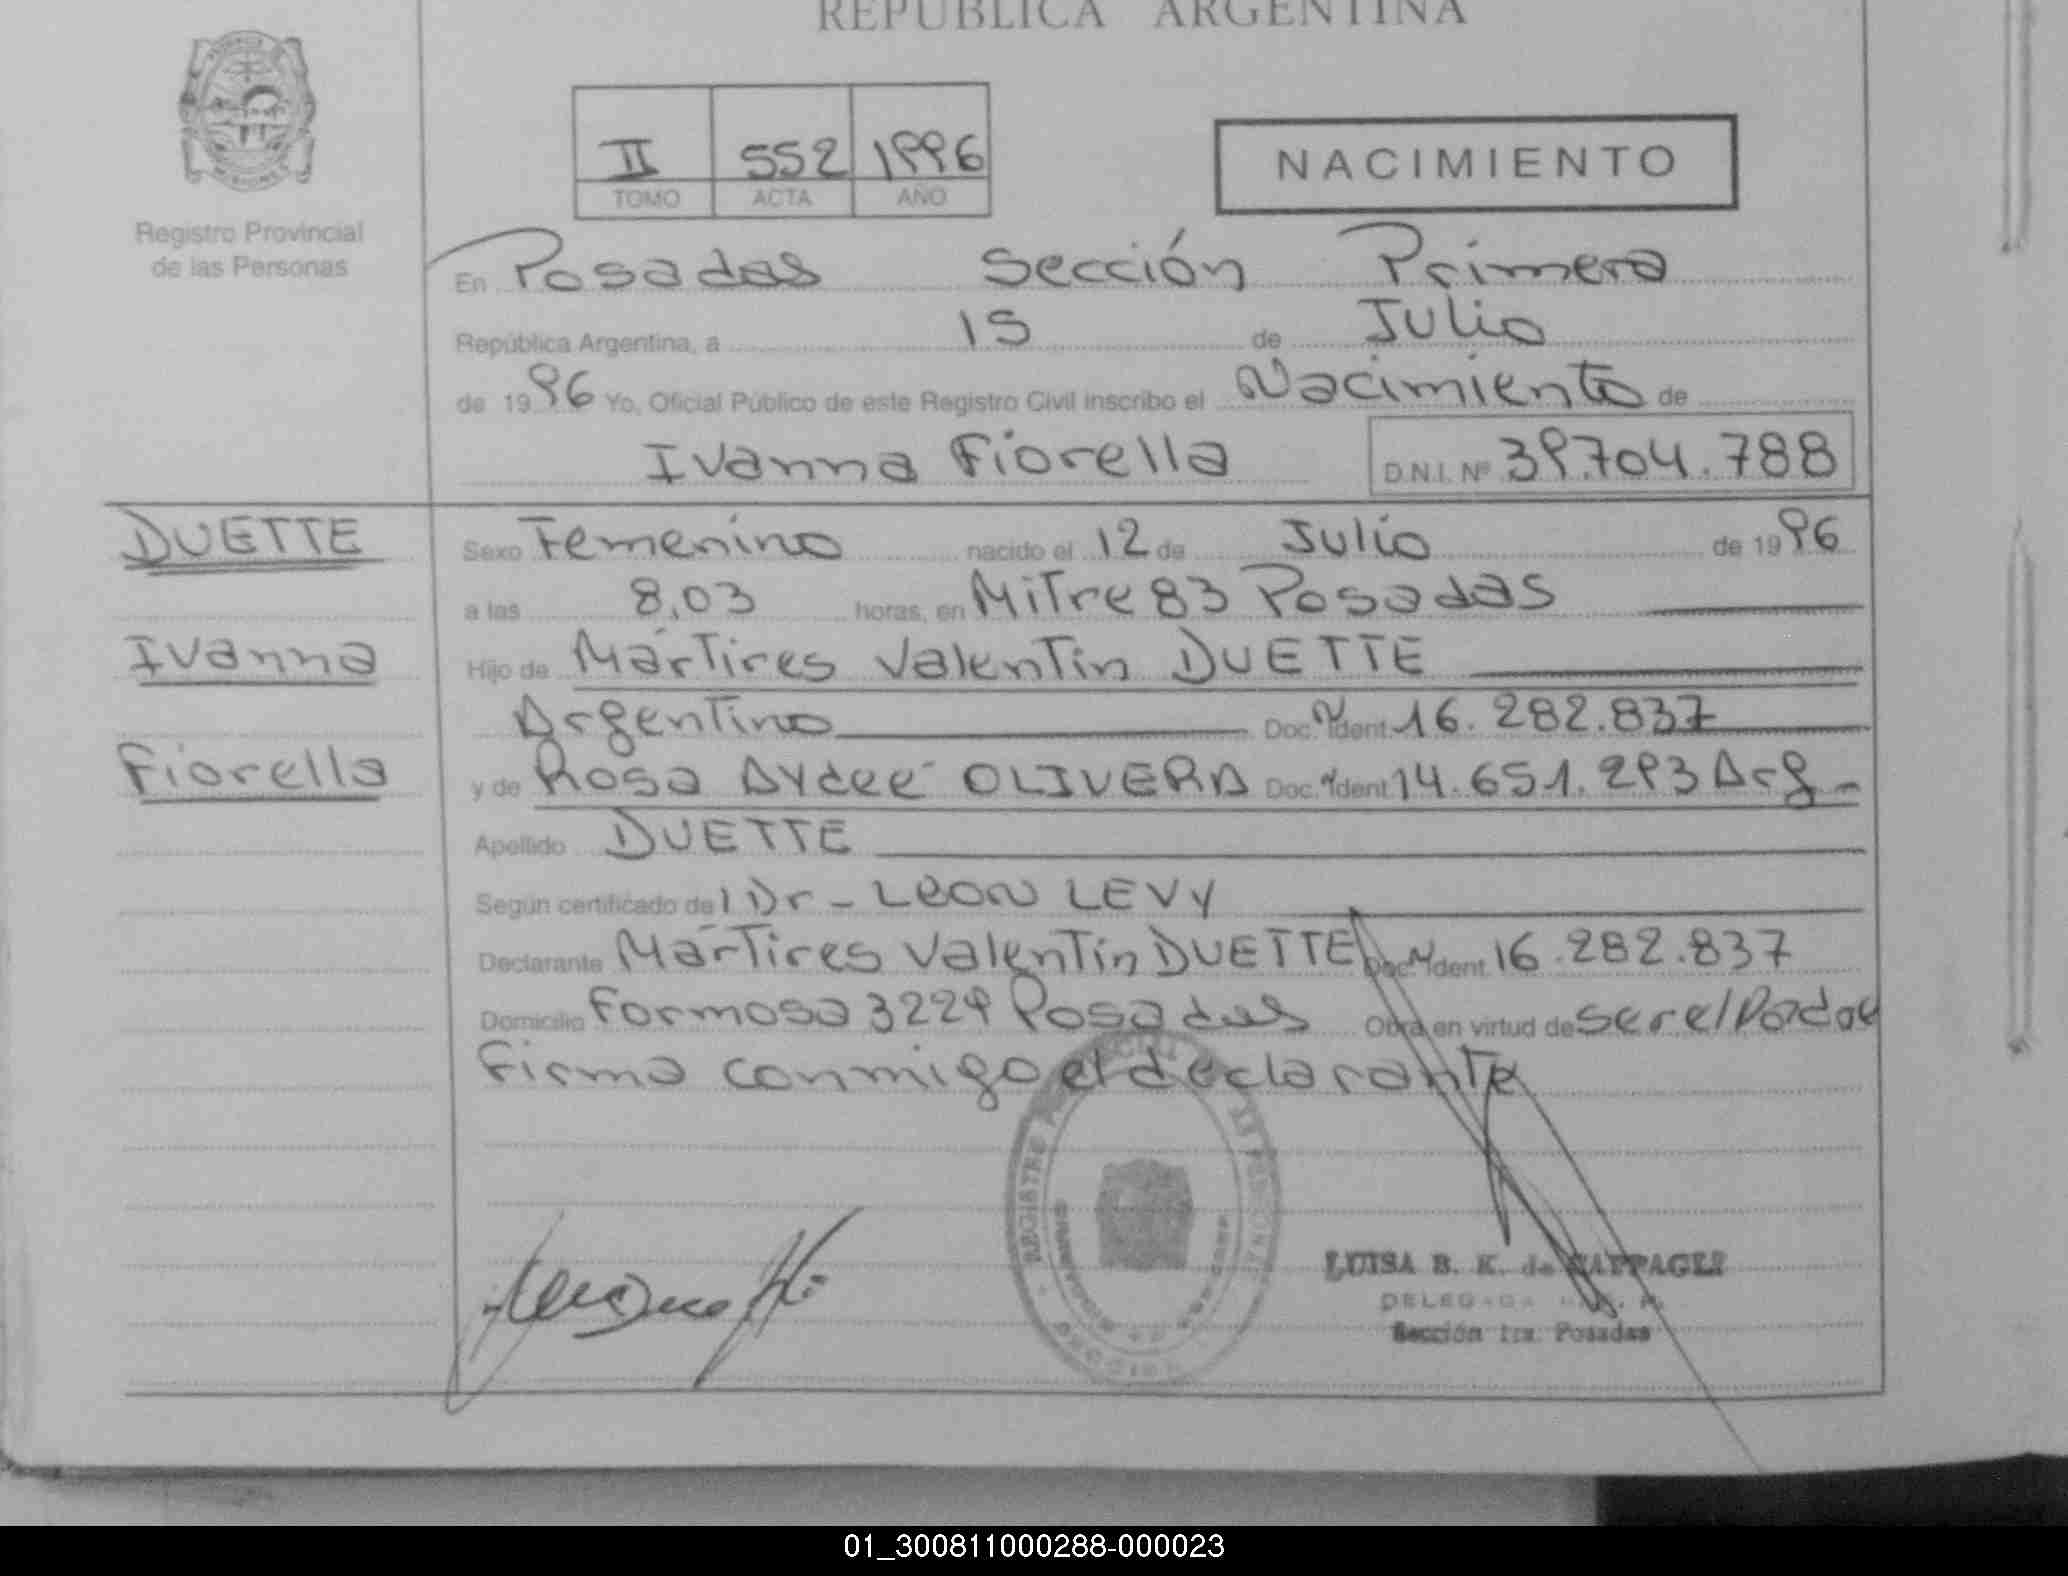 REPUBLICA ARGENTINA
II 552 1996
TOMO ACTA AÑO
NACIMIENTO
Registro Provincial
de las Personas
En Posadas Sección Primera
República Argentina, a 15 de Julio
de 1996 Yo, Oficial Público de este Registro Civil inscribo el Nacimiento de
Ivanna Fiorella D.N.I. Nº 39.704.788
DUETTE
Ivanna
Fiorella
Sexo Femenino nacido el 12 de Julio de 1996
a las 8,03 horas, en Mitre 83 Posadas
Hijo de Mártires Valentín DUETTE
Argentino Doc. Ident. 16.282.837
y de Rosa Aydeé OLIVERA Doc. Ident. 14.651.293 Arg-
Apellido DUETTE
Según certificado del Dr- LEON LEVY
Declarante Mártires Valentín DUETTE Doc. Ident. 16.282.837
Domicilio Formosa 3229 Posadas Obra en virtud de ser el Padre
Firma conmigo el declarante
LUISA B. K. de
Sección 1ra. Posadas
01_300811000288-000023